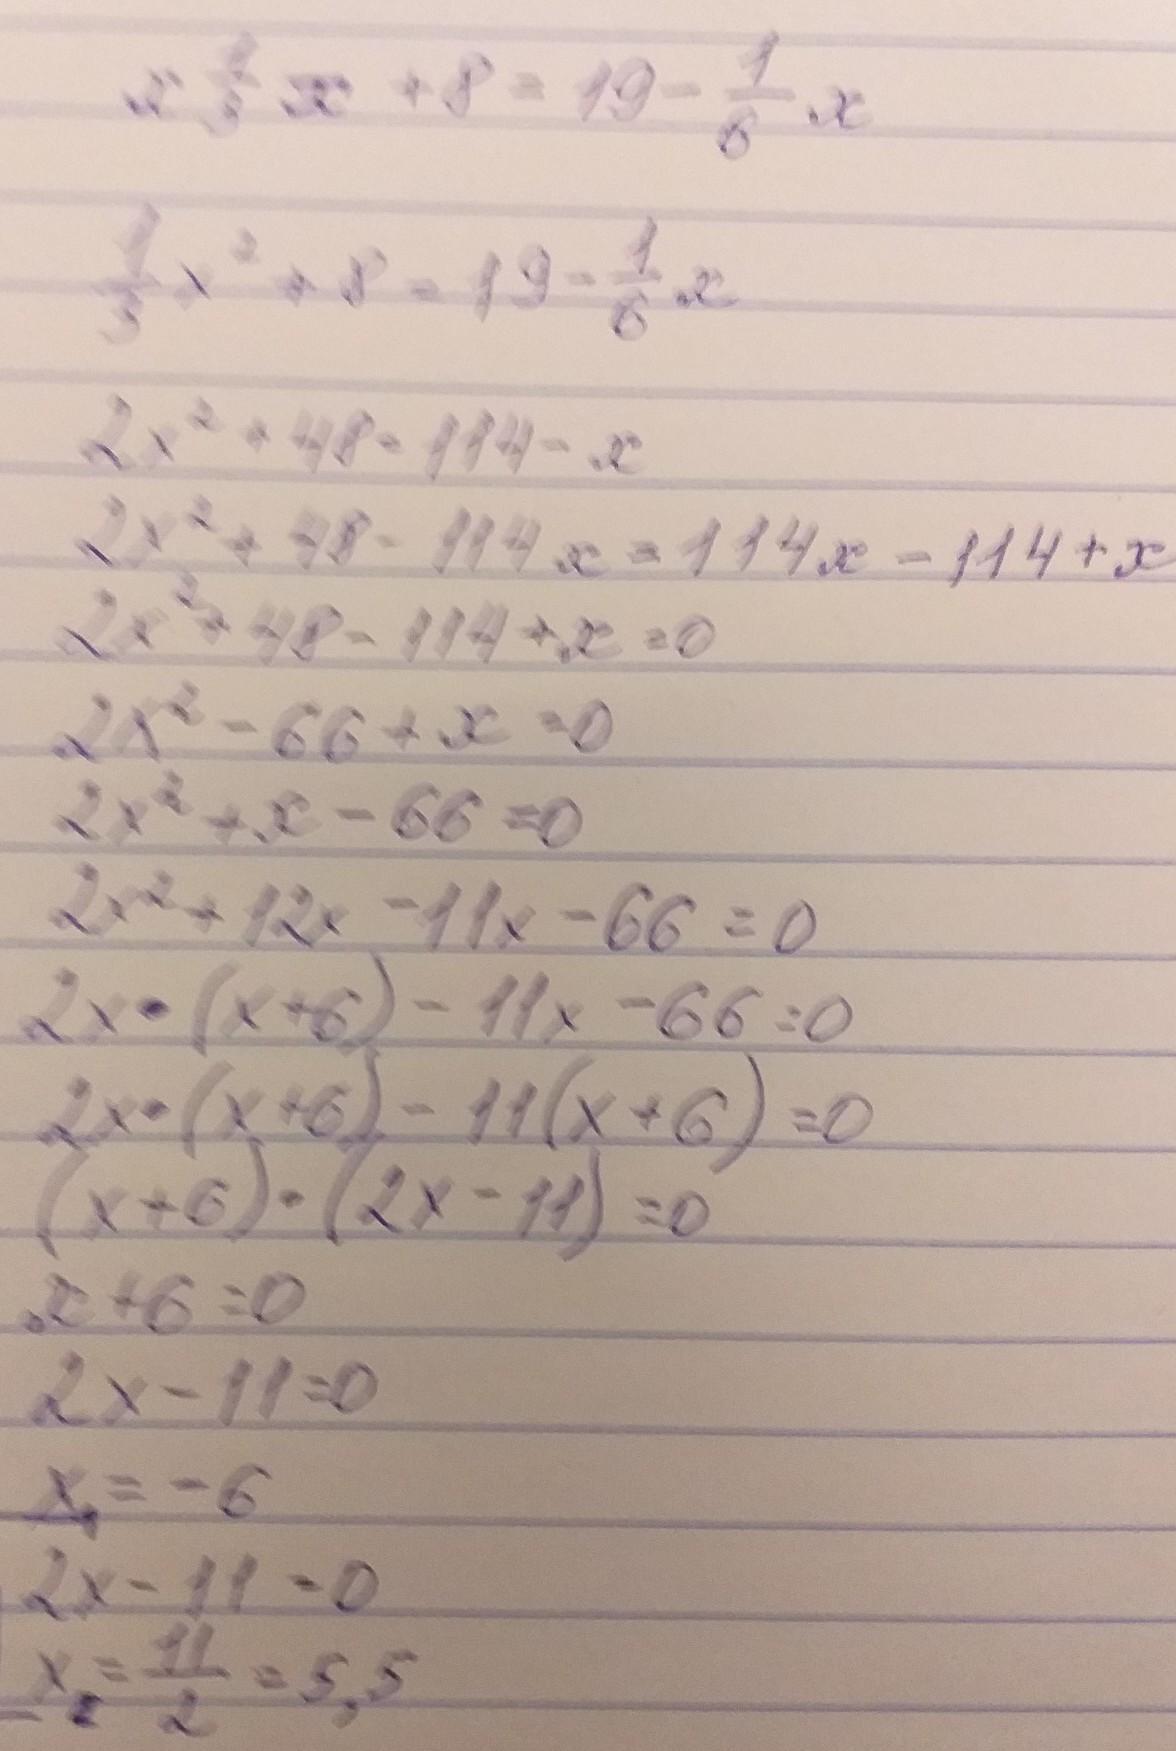 x 1/3 x + 8 = 19 - 1/6 x
1/3 x² + 8 = 19 - 1/6 x
2x² + 48 = 114 - x
2x² + 48 - 114x = 114x - 114 + x
2x² + 48 - 114 + x = 0
2x² - 66 + x = 0
2x² + x - 66 = 0
2x² + 12x - 11x - 66 = 0
2x · (x+6) - 11x - 66 = 0
2x · (x+6) - 11(x+6) = 0
(x+6) · (2x - 11) = 0
x + 6 = 0
2x - 11 = 0
x₁ = -6
2x - 11 = 0
x₂ = 11/2 = 5,5